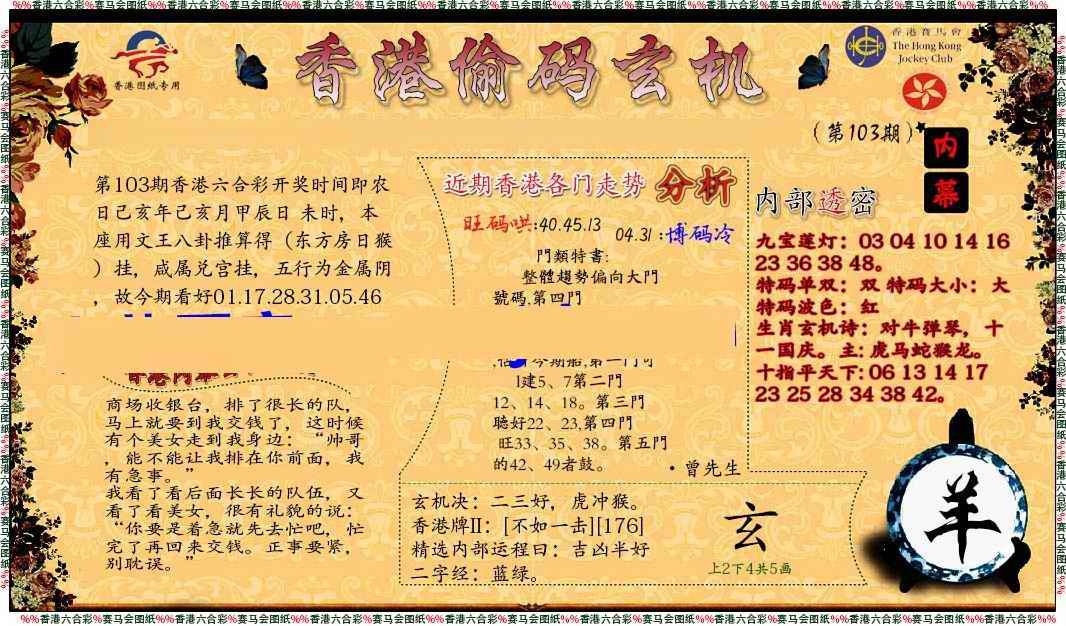 %%香港六合彩%赛马会图纸%%香港六合彩%赛马会图纸%%香港六合彩%赛马会图纸%%香港六合彩%赛马会图纸%%香港六合彩%赛马会图纸%%香港六合彩%赛马会图纸%%香港六合彩%%
香港图纸专用
香港偷码玄机
香港賽馬會
The Hong Kong
Jockey Club
（第103期）
内
幕
第103期香港六合彩开奖时间即农
日己亥年己亥月甲辰日 未时，本
座用文王八卦推算得（东方房日猴
）挂，咸属兑宫挂，五行为金属阴
，故今期看好01.17.28.31.05.46
商场收银台，排了很长的队，
马上就要到我交钱了，这时候
有个美女走到我身边：“帅哥
，能不能让我排在你前面，我
有急事。”
我看了看后面长长的队伍，又
看了看美女，很有礼貌的说：
“你要是着急就先去忙吧，忙
完了再回来交钱。正事要紧，
别耽误。”
近期香港各门走势 分析
旺码哄:40.45.13
04.31 :博码冷
門類特書:
整體趨勢偏向大門
號碼,第四門
l建5、7第二門
12、14、18。第三門
聽好22、23,第四門
旺33、35、38。第五門
的42、49者鼓。
·曾先生
玄机决：二三好，虎冲猴。
香港牌II：[不如一击][176]
精选内部运程曰：吉凶半好
二字经：蓝绿。
玄
上2下4共5画
内部透密
九宝莲灯：03 04 10 14 16
23 36 38 48。
特码单双：双 特码大小：大
特码波色：红
生肖玄机诗：对牛弹琴，十
一国庆。主: 虎马蛇猴龙。
十指平天下: 06 13 14 17
23 25 28 34 38 42。
羊
%%香港六合彩%赛马会图纸%%香港六合彩%赛马会图纸%%香港六合彩%赛马会图纸%%香港六合彩%赛马会图纸%%香港六合彩%赛马会图纸%%香港六合彩%赛马会图纸%%香港六合彩%%